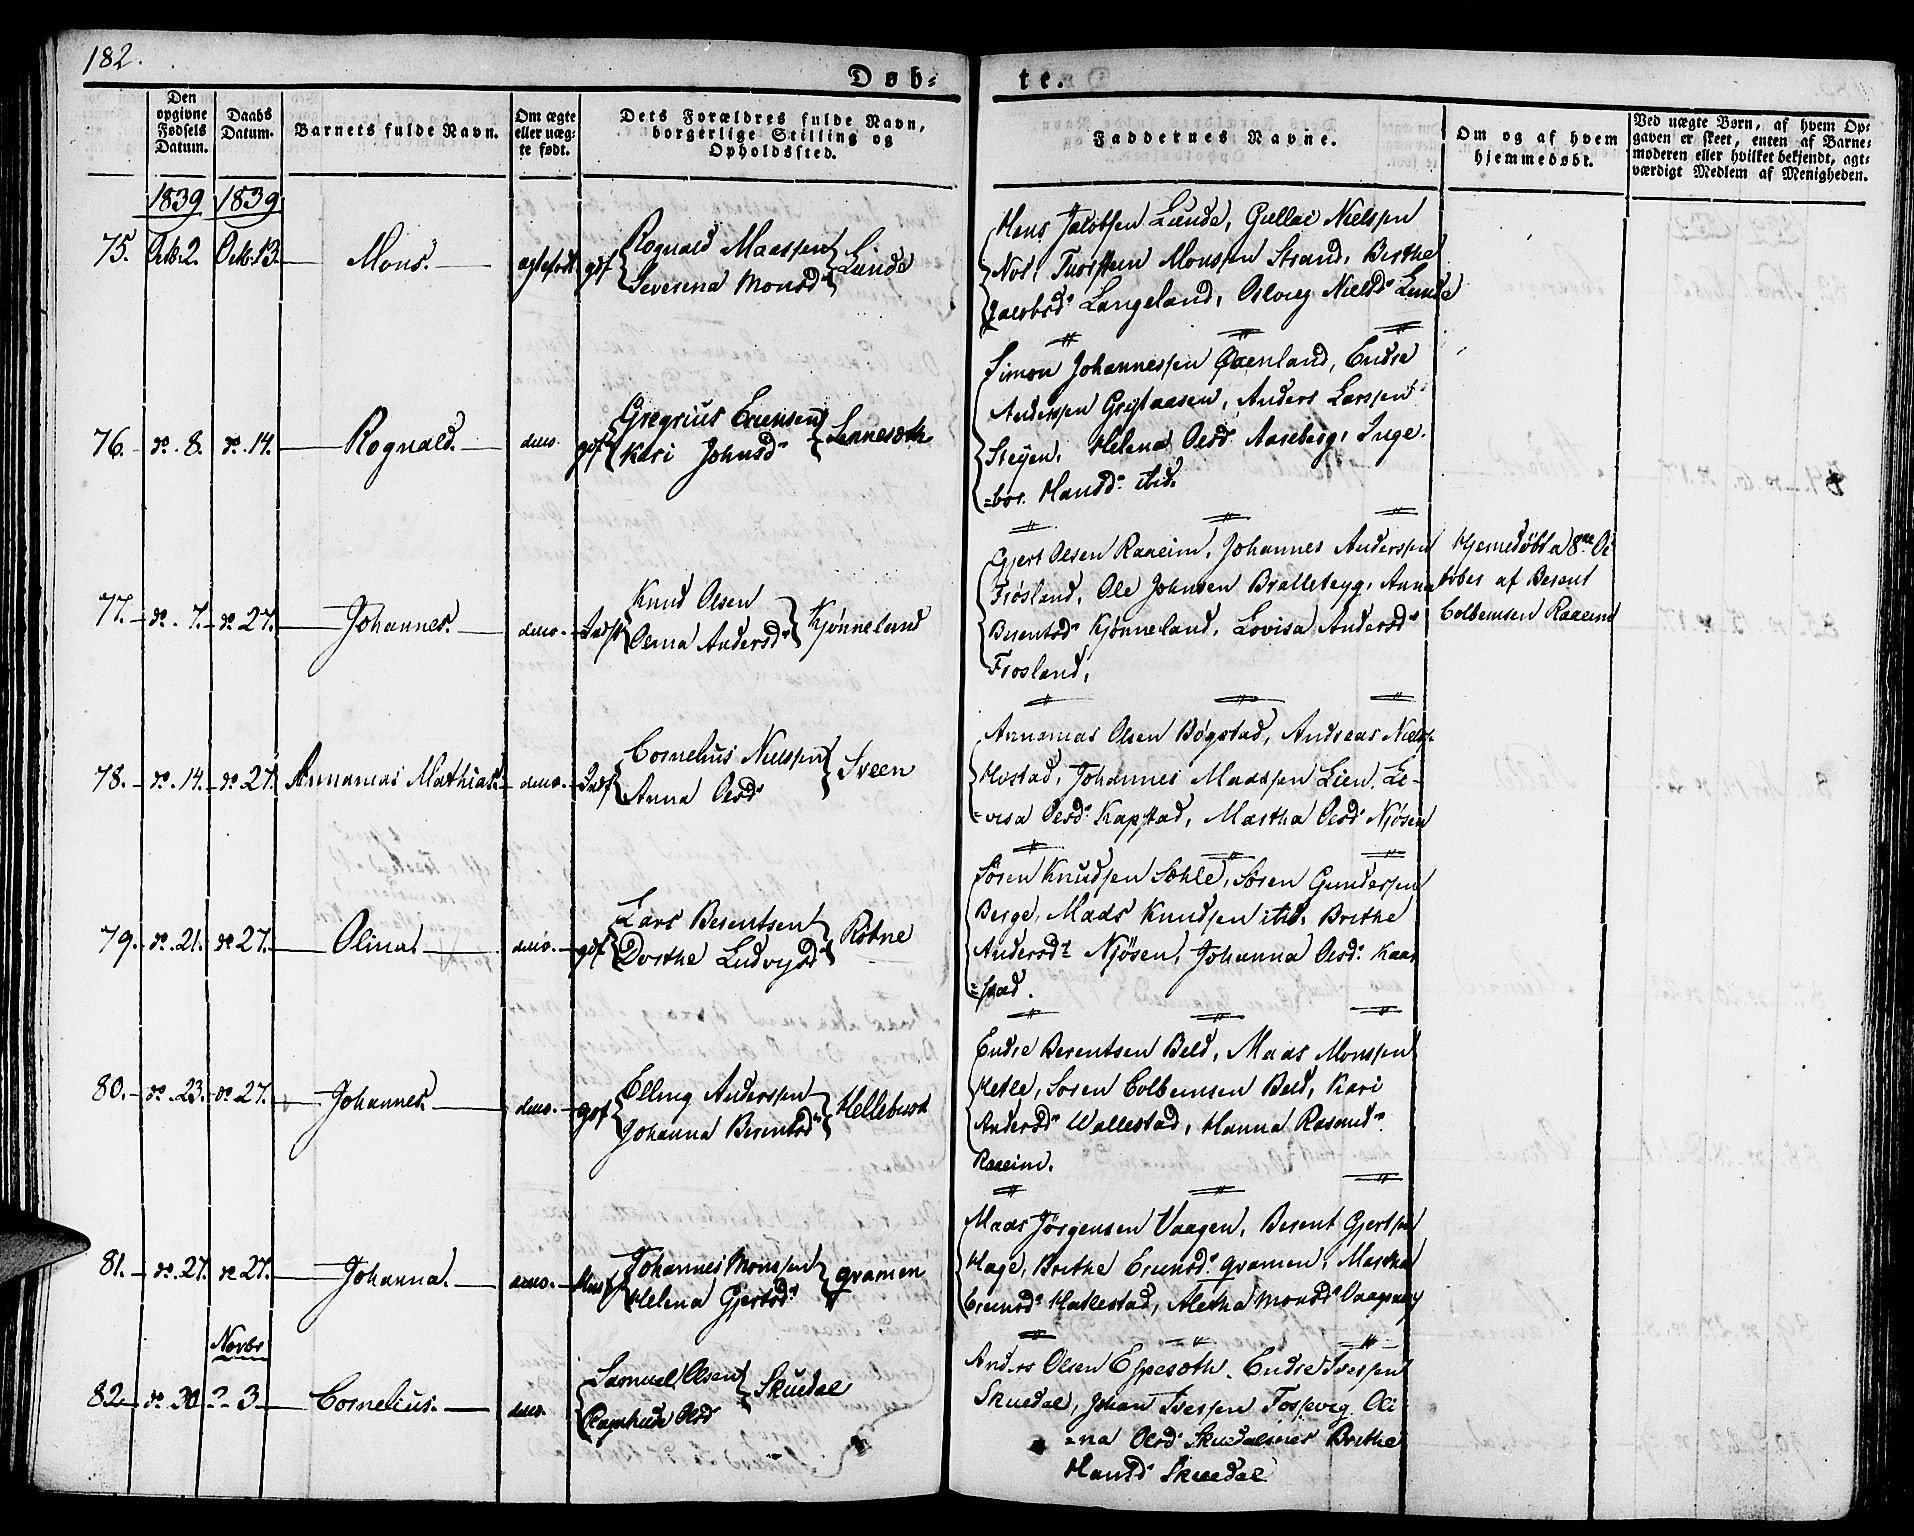 182.
Døb-
te.
Den opgivne Fødsels Datum.
Daabs Datum.
Barnets fulde Navn.
Om ægte eller uægte født.
Dets Forældres fulde Navn, borgerlige Stilling og Opholdssted.
Faddernes Navne.
Om og af hvem hjemmedøbt.
Ved uægte Børn, af hvem Op-
gaven er skeet, enten af Barne-
moderen eller hvilket bekjendt, agt-
værdigt Medlem af Menigheden.
1839 1839
75. Octb. 2. Octb. 13. Mons. ægtefødt gdf
Rognald Madssen
Severina Monsd. Lunde
Hans Jakobsen Lunde, Nielssen
Monssen Strand, Birthe
Langeland, Nielsd. Lunde
76. do. 8. do. 14. Rognald. dito gdf
Kari Johnsd.
Simon Johannessen Endre
Anderssen Anders Larssen
Steyen, Helena Olsd. Aaseberg, Inge-
-bor. Hansd. ibid.
77. do. 7. do 27. Johannes. dito.
Knud Olsen
Andersd. Kjønneland
Gjert Olsen Raaeim, Johannes Anderssen
Frøsland, Ole Johnsen Anna
Berentsd. Kjønneland, Lovisa Andersd.
Frosland,
Hjemedøbt 8de Oc
tober af Berent
Colbensen Raaeim
78. do. 14. do 27. Annanias Mathias. dito. Indf
Cornelius Nielssen
Anna Olsd. Sveen
Annanias Olsen Bøgstad, Andreas Nielss.
Hostad, Johannes Madssen Lien, Le-
-visa Olsd. Kapstad, Martha Olsd. Njøsen
79. do. 21. do 27. Olina dito. gdf
Lars Berentsen
Dorthe Ludvigsd.
Søren Knudsen Søren Gunderssen
Berge, Mads Knudsen ibid. Brithe
Andersd. Njøsen, Johanna Olsd. Kaar
-stad.
80. do. 23. do 27. Johannes. dito. gdf
Elling Anderssen
Johanna Berentsd.
Endre Berentsen Beld, Mads Monssen
Hetle, Soren Colbensen Beld, Kari
Andersd. Wallestad, Hanna Rasmd.
Raaeim.
81. do. 27. do 27. Johanna. dito.
Johannes Monssen
Helena Gjertsd. Gramen
Mads Jörgensen Vaagen, Berent Gjertssen
Hage, Brithe Gramen, Martha
Hatlestad, Aletha Monsd.
Novbr
82. do. 30 3 Cornelius. dito.
Samuel Olsen
Olsd. Skuedal
Anders Olsen Endre Iverssen
Skuedal, Johan Iverssen Oli
-na Olsd. Brithe
Hansd. Skuedal